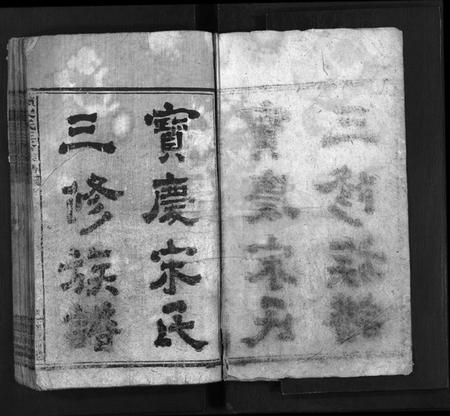 寶慶宋氏
三修族譜